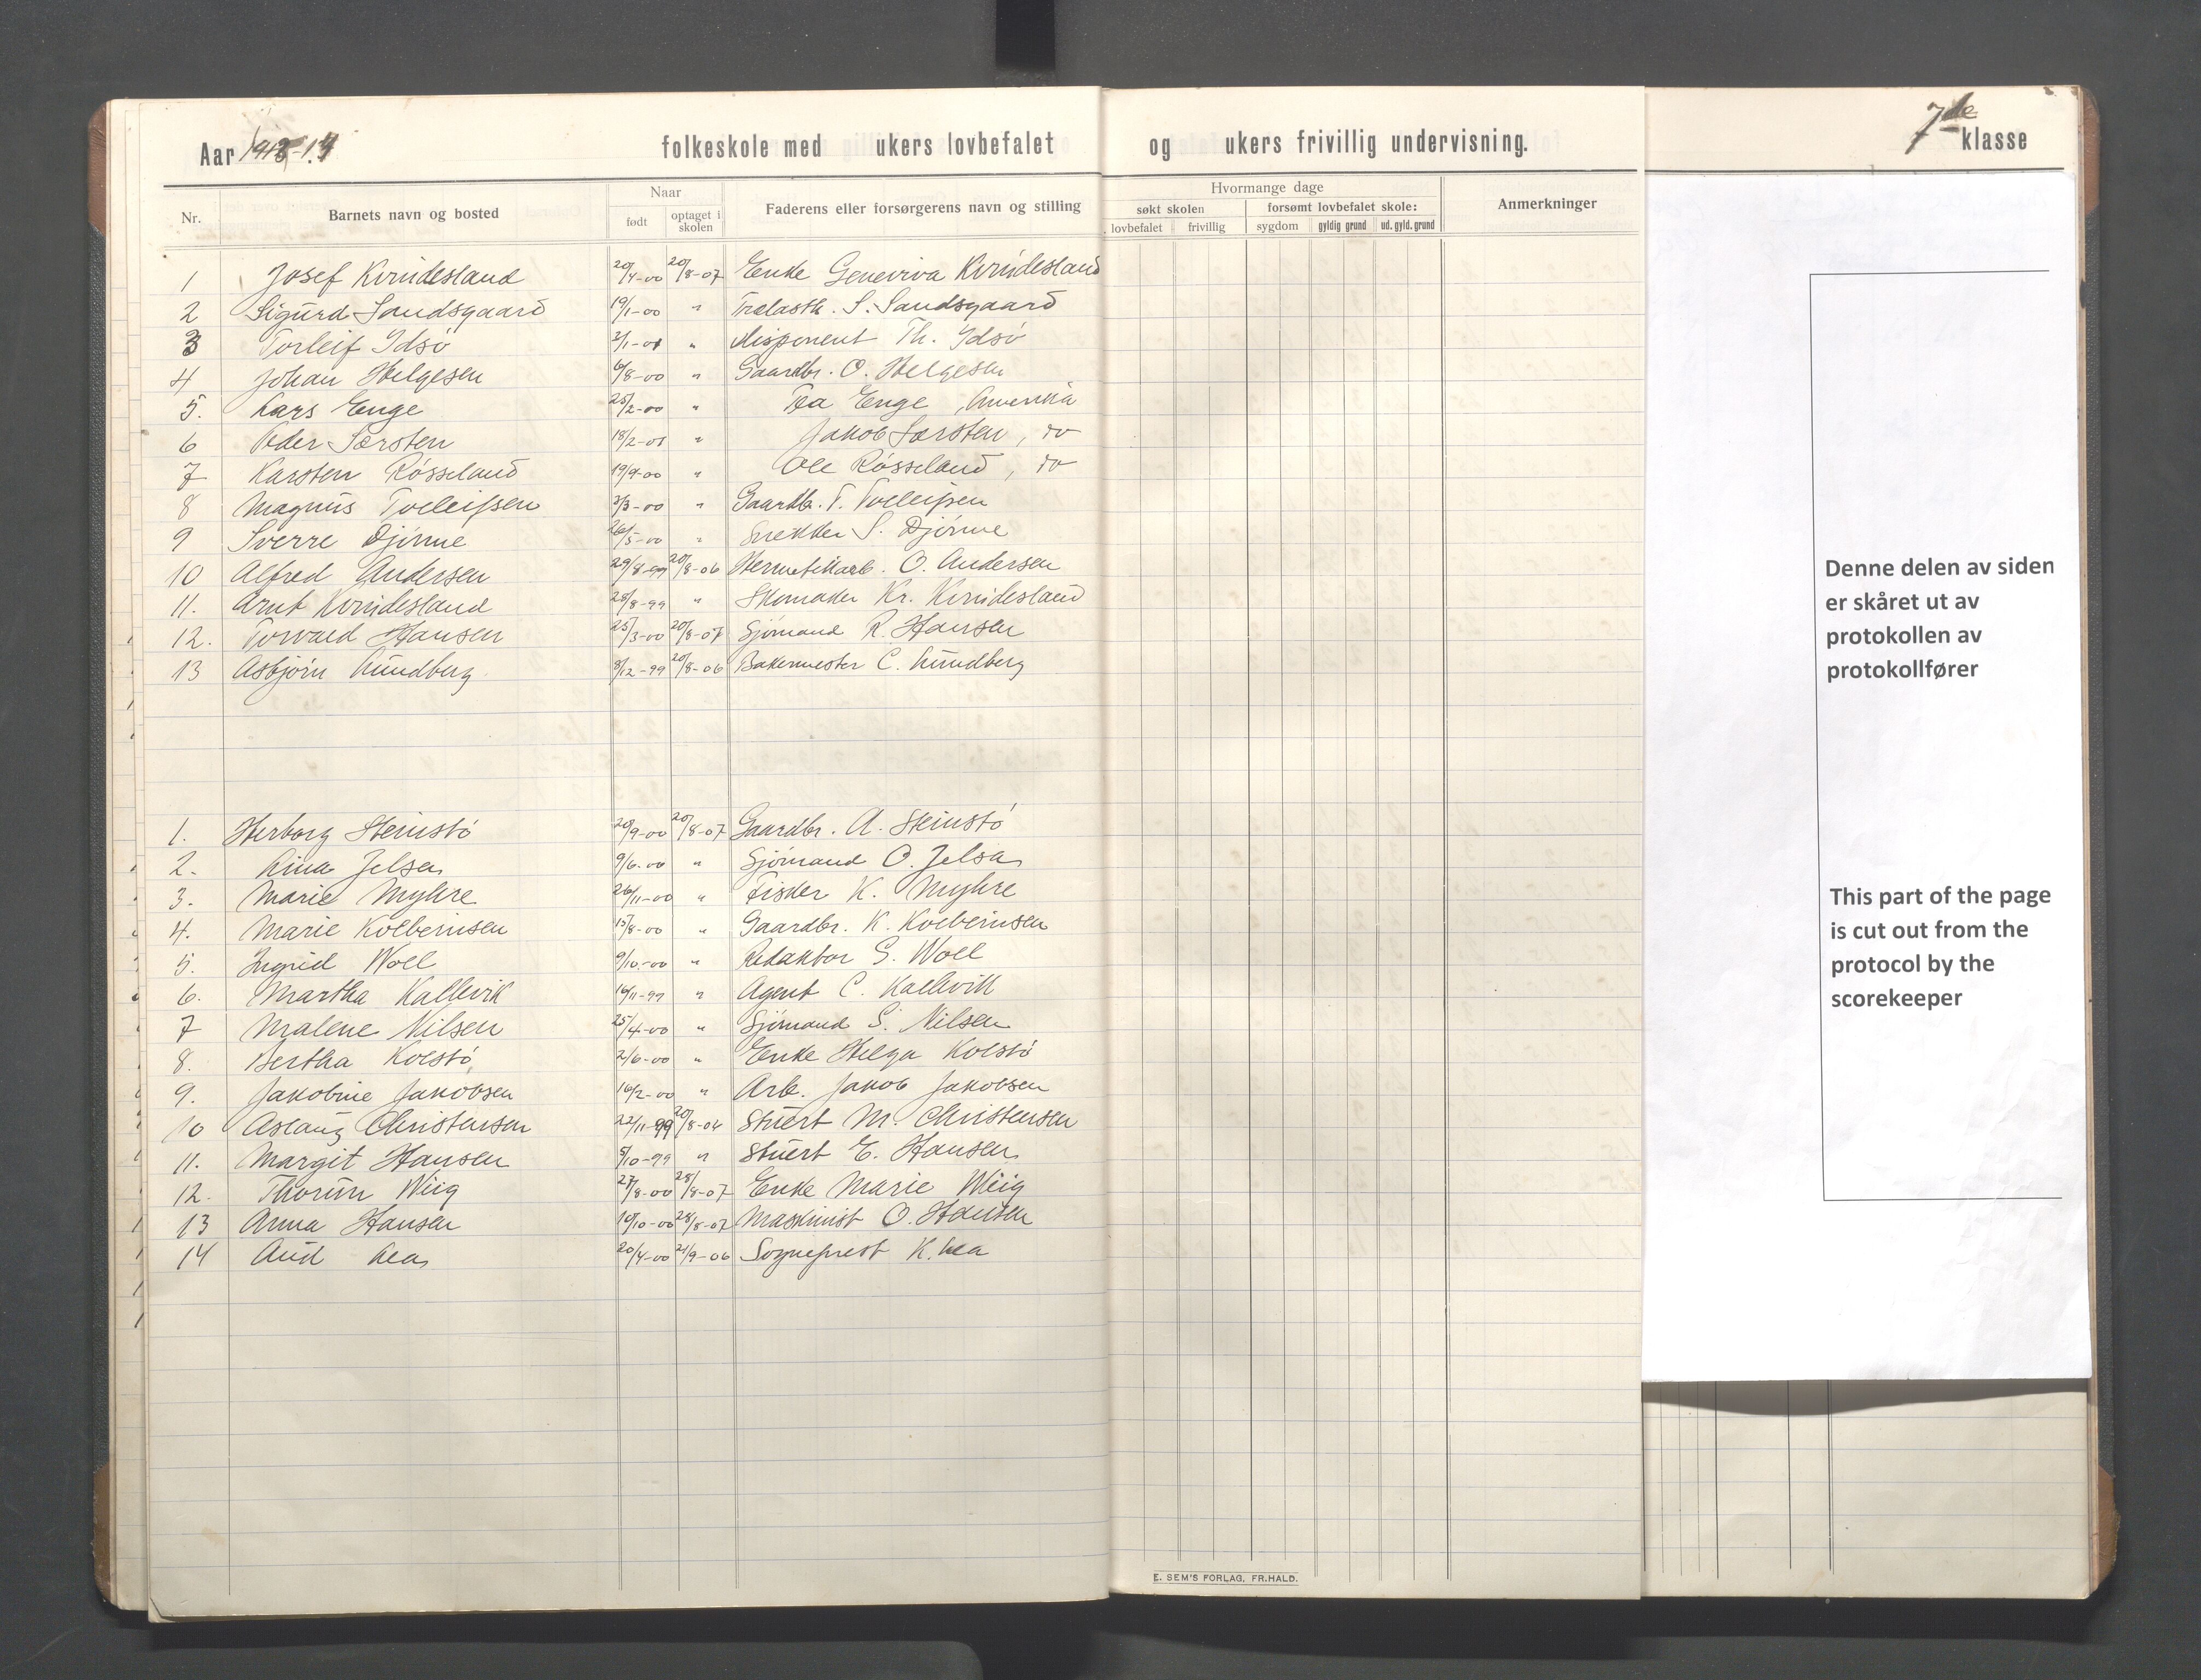 Aar 1913-14 folkeskole med ukers lovbefalet og ukers frivillig undervisning. 7de klasse
Nr. Barnets navn og bosted Naar født optaget i skolen Faderens eller forsørgerens navn og stilling Hvormange dage søkt skolen lovbefalet frivillig forsømt lovbefalet skole: sygdom gyldig grund ud. gyld. grund Anmerkninger
1 Josef Kvindesland 20/4-00 20/8-07 Enke Geneviva Kvindesland
2 Sigurd Sandsgaard 19/1-00 " Trælasth. S. Sandsgaard
3 Torleif Idsø 2/1-01 " Disponent Th. Idsø
4 Johan Helgesen 6/8-00 " Gaardbr. O. Helgesen
5. Lars Enge 25/2-00 " Tea Enge, Amerika
6 Peder Sørsten 18/2-01 " Jakob Sørsten, do
7 Karsten Røsseland 19/9-00 " Ole Røsseland, do
8 Magnus Tolleifsen 3/3-00 " Gaardbr. T. Tolleifsen
9 Sverre Djønne 26/5-00 " Snekker S. Djønne
10 Alfred Andersen 29/8-99 20/8-06 Hermetikarb. O. Andersen
11. Arnt Kvindesland 28/8-99 " Skomaker Kr. Kvindesland
12. Torvald Hansen 25/3-00 20/8-07 Sjømand R. Hansen
13 Asbjørn Lundberg 8/12-99 20/8-06 Bakermester C. Lundberg
1. Herborg Steinstø 20/9-00 20/8-07 Gaardbr. A. Steinstø
2. Lina Jelsa 9/6-00 " Sjømand O. Jelsa
3. Marie Myhre 26/11-00 " Fisker K. Myhre
4. Marie Kolbeinsen 15/8-00 " Gaardbr. K. Kolbeinsen
5. Ingrid Woll 9/10-00 " Redaktør S. Woll
6. Martha Kallevik 16/11-99 " Agent C. Kallevik
7 Malene Nilsen 25/4-00 " Sjømand S. Nilsen
8. Bertha Kolstø 2/6-00 " Enke Helga Kolstø
9. Jakobine Jakobsen 16/2-00 " Arb. Jakob Jakobsen
10 Aslaug Christensen 22/11-99 20/8-06 Stuert M. Christensen
11. Margit Hansen 8/10-99 " Stuert E. Hansen
12. Thorun Wiig 27/8-00 28/8-07 Enke Marie Wiig
13 Anna Hansen 10/10-00 28/8-07 Maskinist O. Hansen
14 Aud Lea 20/4-00 21/9-06 Sogneprest K. Lea
Denne delen av siden
er skåret ut av
protokollen av
protokollfører
This part of the page
is cut out from the
protocol by the
scorekeeper
E. SEM'S FORLAG, FR.HALD.